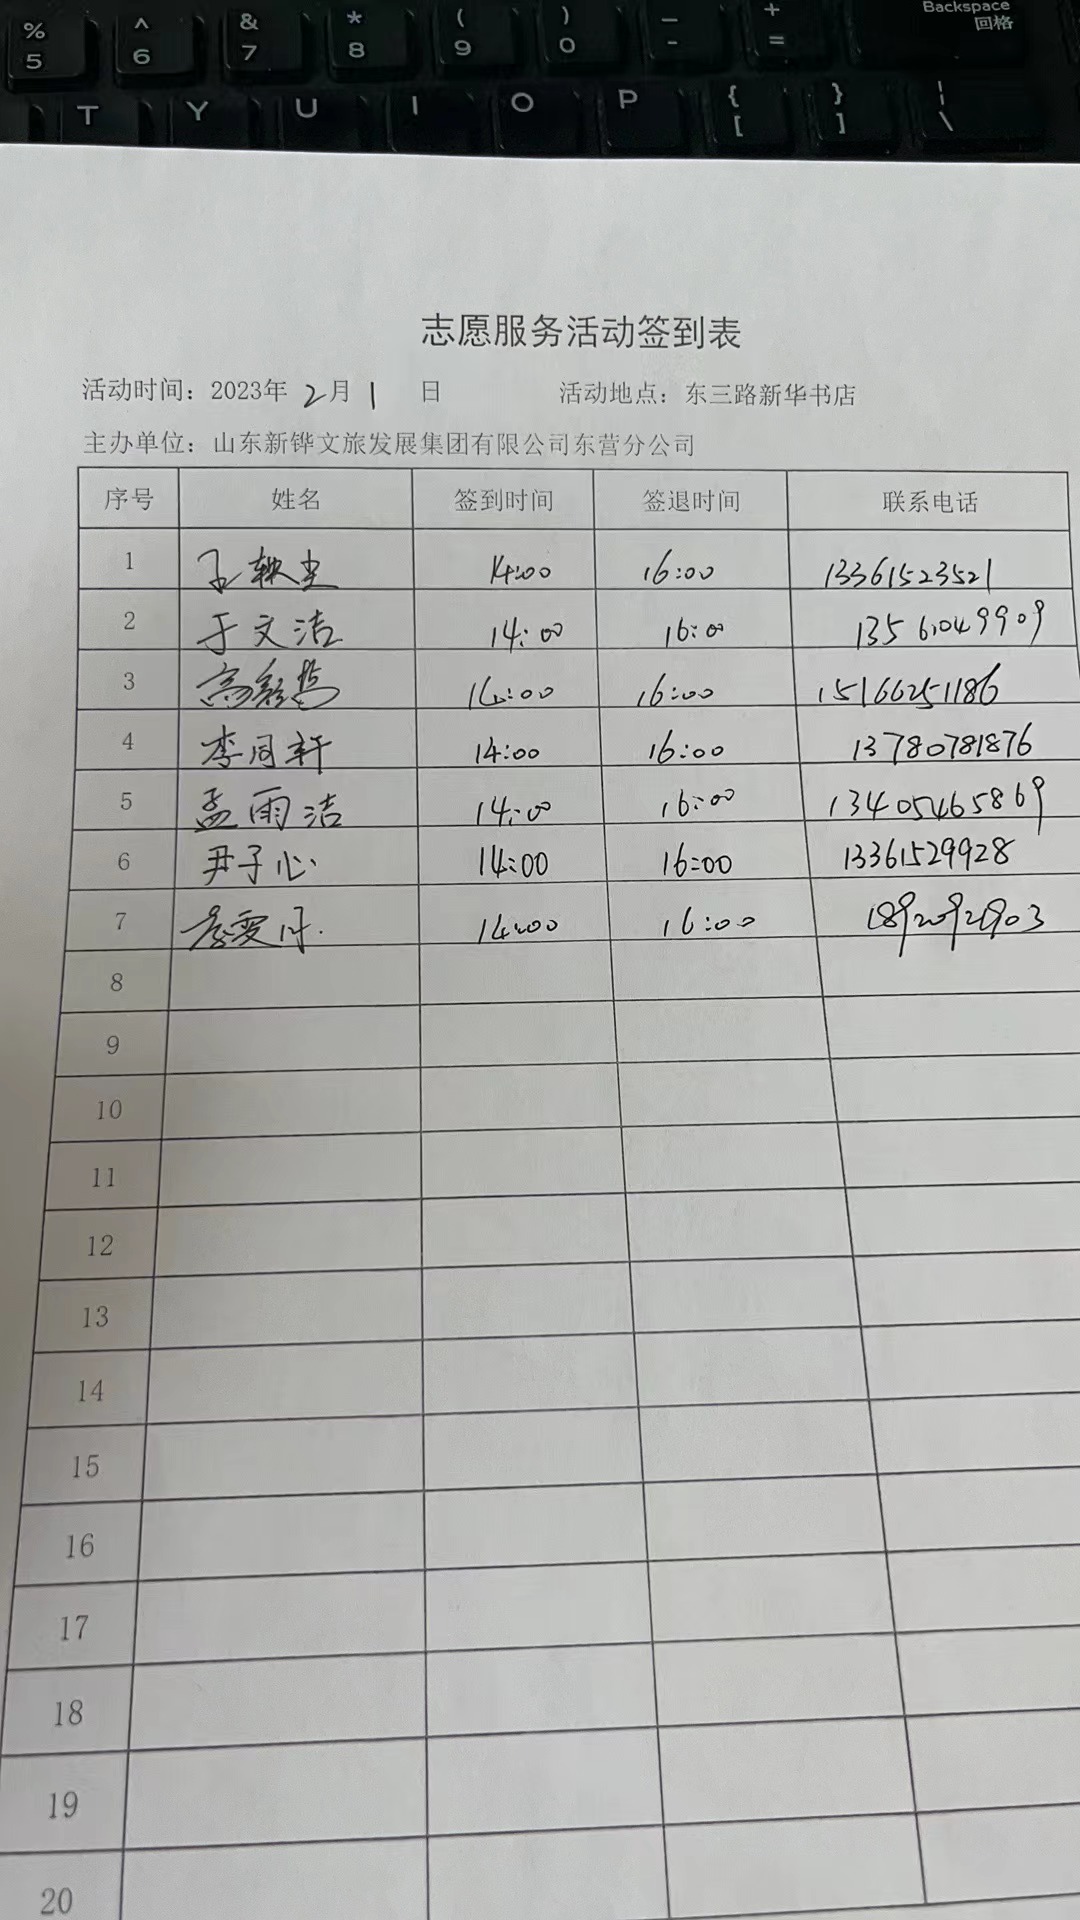 % 5 ^ 6 & 7 * 8 ( 9 ) 0 — - + = Backspace
回格
T Y U I O P { [ } ] ¦ \
志愿服务活动签到表
活动时间：2023年 2月 1 日 活动地点：东三路新华书店
主办单位：山东新铧文旅发展集团有限公司东营分公司
序号 姓名 签到时间 签退时间 联系电话
1 14:00 16:00 13361523521
2 于文洁 14:00 16:00 13561049909
3 14:00 16:00 15166251186
4 李同轩 14:00 16:00 13780781876
5 孟雨洁 14:00 16:00 13405465869
6 尹子心 14:00 16:00 13361529928
7 14:00 16:00 18920921903
8
9
10
11
12
13
14
15
16
17
18
19
20